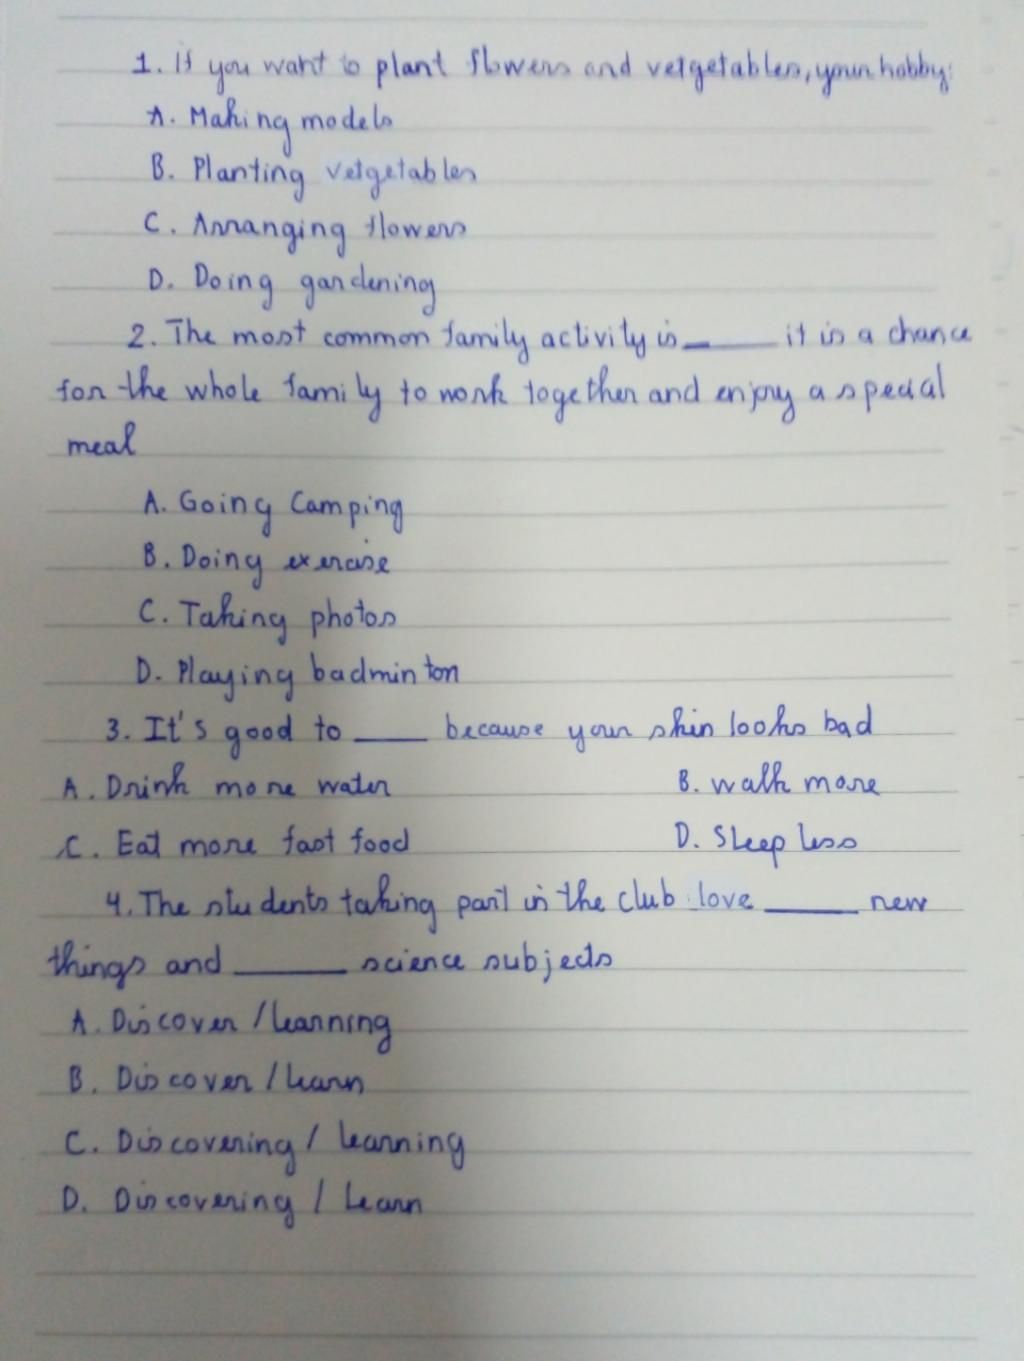 1. If you want to plant flowers and vetgetables, your hobby:
A. Making models
B. Planting vetgetables
C. Arranging flowers
D. Doing gardening
2. The most common family activity is ____ it is a chance
for the whole family to work together and enjoy a special
meal
A. Going Camping
B. Doing exercise
C. Taking photos
D. Playing badminton
3. It's good to ____ because your skin looks bad
A. Drink more water B. walk more
C. Eat more fast food D. Sleep less
4. The students taking part in the club love ____ new
things and ____ science subjects
A. Discover / learning
B. Discover / learn
C. Discovering / learning
D. Discovering / Learn